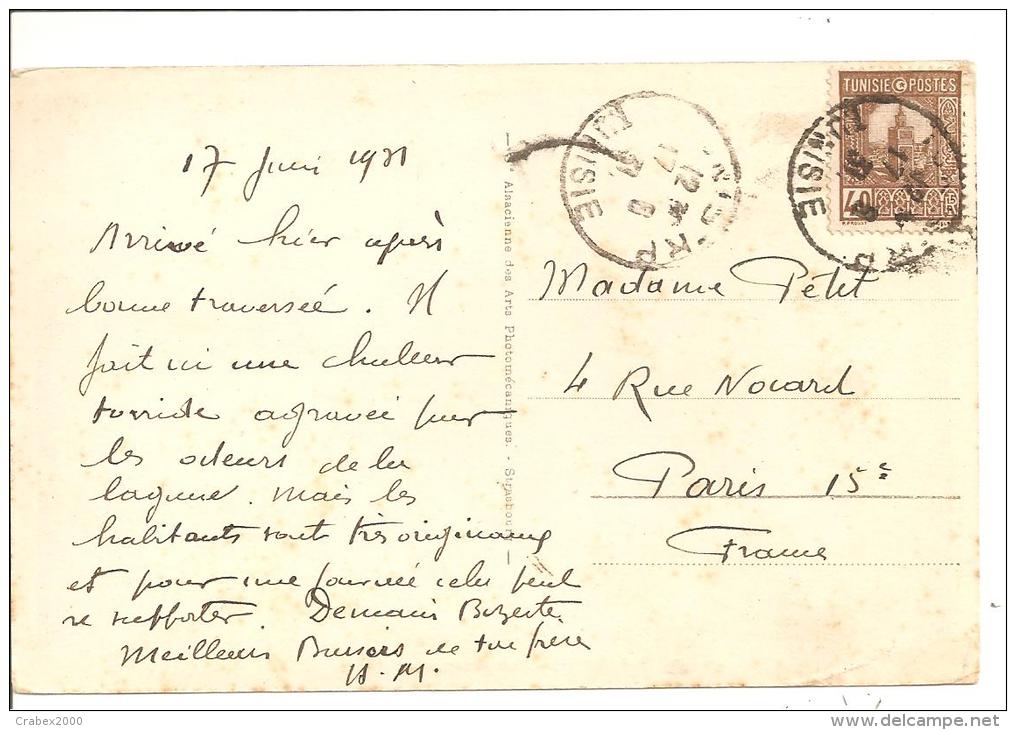 17 Juin 1931
Arrivé hier après
bonne traversée. Il
fait ici une chaleur
torride agravée par
les odeurs de la
lagune. Mais les
habitants sont très originaux
et pour une journée cela peut
se supporter. Demain Bizerte.
Meilleurs Baisers de ton frère
H. M.
Alsacienne des Arts Photomécaniques. - Strasbourg
TUNISIE POSTES
40
TUNISIE
TUNISIE
Madame Petit
4 Rue Nocard
Paris 15e
France
Crabex2000
www.delcampe.net